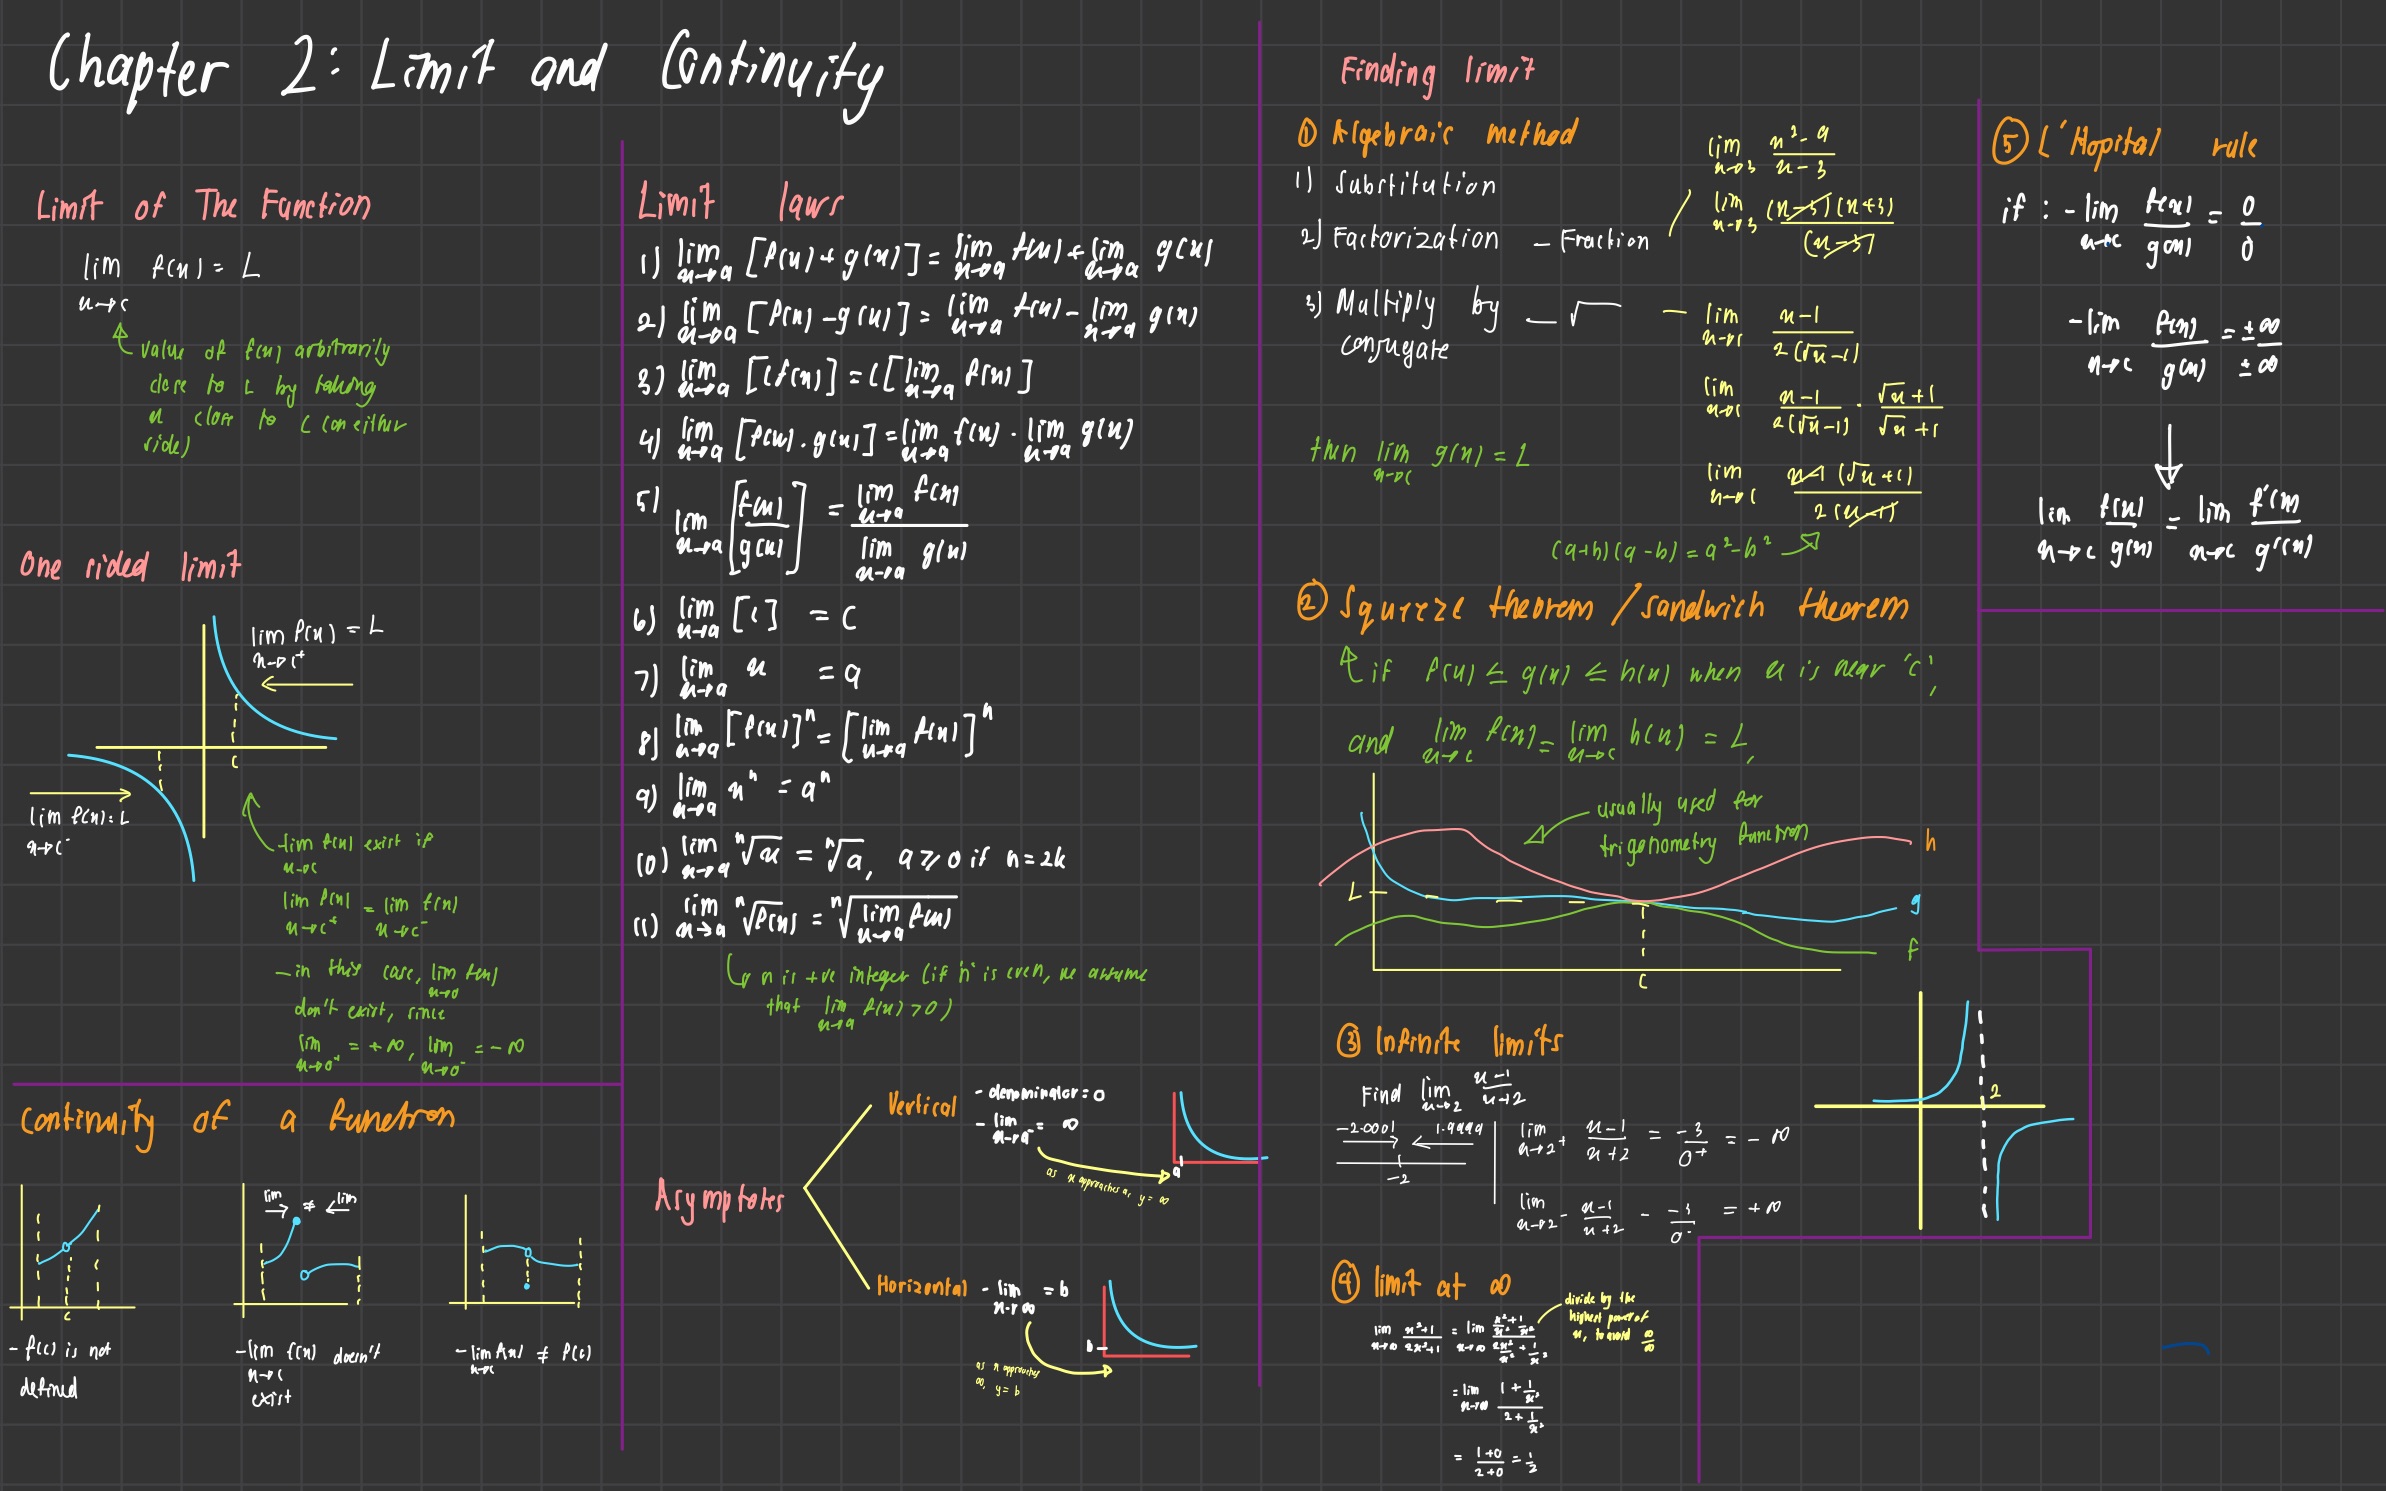 Chapter 2: Limit and Continuity
Limit of The Function
lim f(x) = L
x→c
value of f(x) arbitrarily
close to L by taking
x close to c (on either
side)
One sided limit
lim f(x) = L
x→c⁺
c
lim f(x) = L
x→c⁻
- lim f(x) exist if
x→c
lim f(x) = lim f(x)
x→c⁺ x→c⁻
- in this case, lim f(x)
x→0
don't exist, since
lim = +∞, lim = -∞
x→0⁺ x→0⁻
Continuity of a function
c
- f(c) is not
defined
lim ≠ lim
→ ←
- lim f(x) doesn't
x→c
exist
- lim f(x) ≠ f(c)
x→c
Limit laws
1) lim x→a [f(x) + g(x)] = lim x→a f(x) + lim x→a g(x)
2) lim x→a [f(x) - g(x)] = lim x→a f(x) - lim x→a g(x)
3) lim x→a [c f(x)] = c[lim x→a f(x)]
4) lim x→a [f(x) . g(x)] = lim x→a f(x) · lim x→a g(x)
5) lim x→a [f(x)/g(x)] = lim x→a f(x) / lim x→a g(x)
6) lim x→a [c] = c
7) lim x→a x = a
8) lim x→a [f(x)]ⁿ = [lim x→a f(x)]ⁿ
9) lim x→a xⁿ = aⁿ
10) lim x→a ⁿ√x = ⁿ√a, a ≥ 0 if n = 2k
11) lim x→a ⁿ√f(x) = ⁿ√lim x→a f(x)
↳ n is +ve integer (if 'n' is even, we assume
that lim x→a f(x) > 0)
Asymptotes
Vertical
- denominator = 0
- lim x→a⁻ = ∞
as x approaches a, y = ∞
a
Horizontal
- lim x→∞ = b
as x approaches
∞, y = b
b
Finding limit
① Algebraic method
1) Substitution
2) Factorization - Fraction
lim x→3 x²-9 / x-3
lim x→3 (x-3)(x+3) / (x-3)
3) Multiply by - √
conjugate
- lim x→1 x-1 / 2(√x-1)
lim x→1 x-1 / 2(√x-1) · √x+1 / √x+1
lim x→1 x-1 (√x+1) / 2(x-1)
(a+b)(a-b) = a²-b²
then lim x→c g(x) = L
② Squeeze theorem / sandwich theorem
if f(x) ≤ g(x) ≤ h(x) when x is near 'c',
and lim x→c f(x) = lim x→c h(x) = L,
usually used for
trigonometry function
h
L
g
f
c
③ Infinite limits
Find lim x→2 x-1 / x+2
-2.0001 1.9999
-2
lim x→2⁺ x-1 / x+2 = -3 / 0⁺ = -∞
lim x→2⁻ x-1 / x+2 - -3 / 0⁻ = +∞
2
④ limit at ∞
lim x→∞ x²+1 / 2x²+1 = lim x→∞ x²/x² + 1/x² / 2x²/x² + 1/x²
divide by the
highest power of
x, to avoid ∞/∞
= lim x→∞ 1 + 1/x² / 2 + 1/x²
= 1+0 / 2+0 = 1/2
⑤ L'Hopital rule
if : - lim x→c f(x) / g(x) = 0 / 0
- lim x→c f(x) / g(x) = ±∞ / ±∞
lim x→c f(x) / g(x) = lim x→c f'(x) / g'(x)